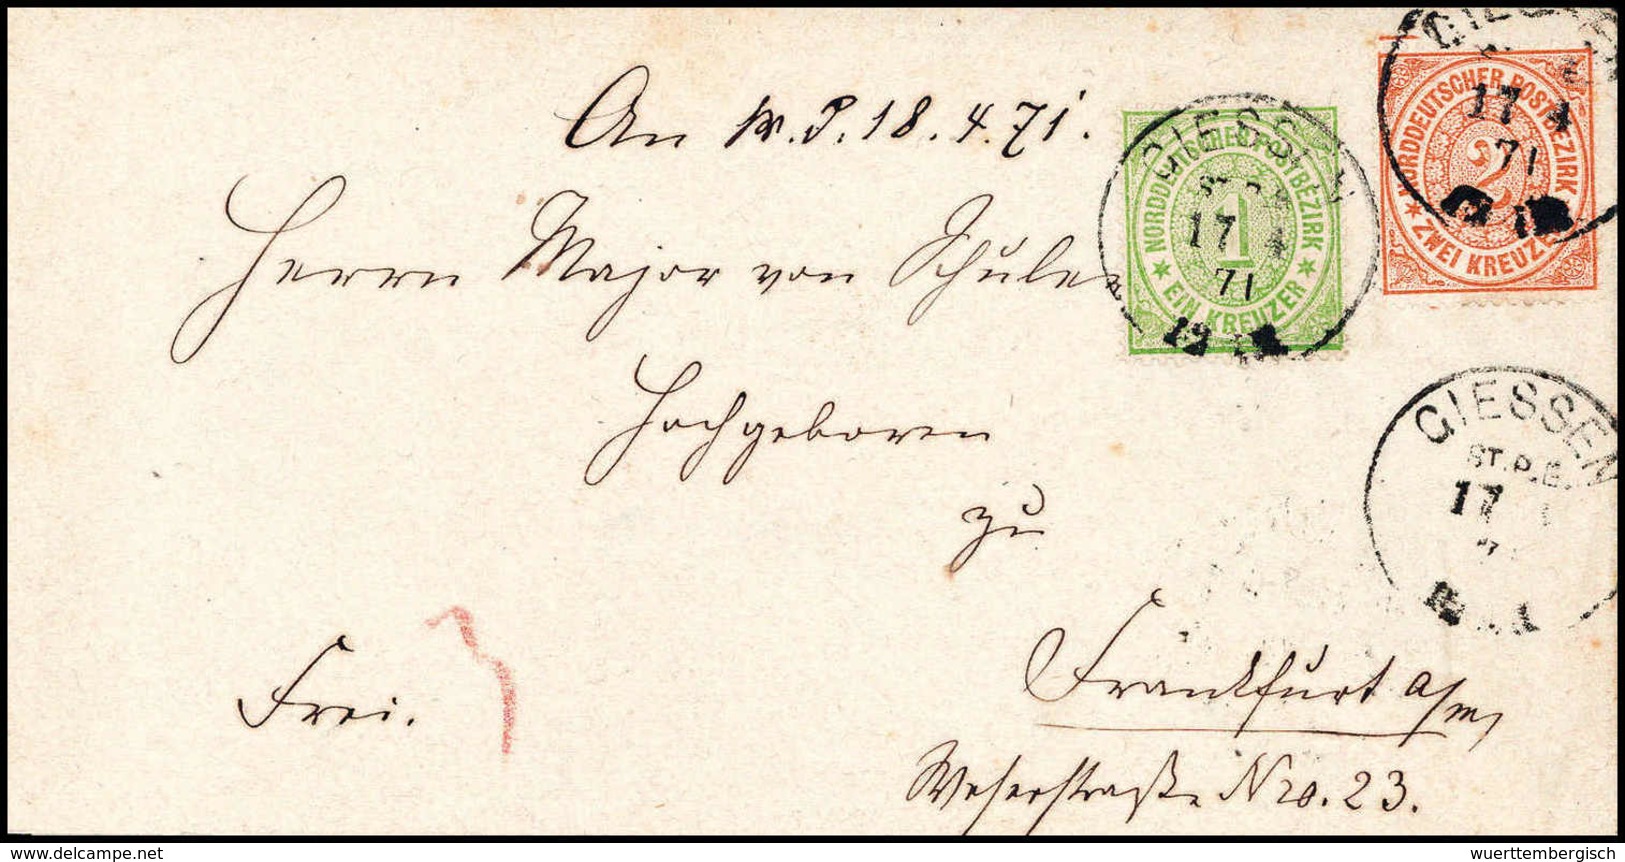 An W. P. 18. 4. 71.
Herrn Major von Schuler
Hochgeboren
zu
Frankfurt a/m
Weserstraße Nro. 23.
Frei.
3
NORDDEUTSCHER POSTBEZIRK
1
EIN KREUZER
NORDDEUTSCHER POSTBEZIRK
2
ZWEI KREUZER
GIESSEN
ST. P. E.
17 4
71
12
GIESSEN
17 4
71
GIESSEN
ST. P. E.
17
delcampe.net
wuerttembergisch